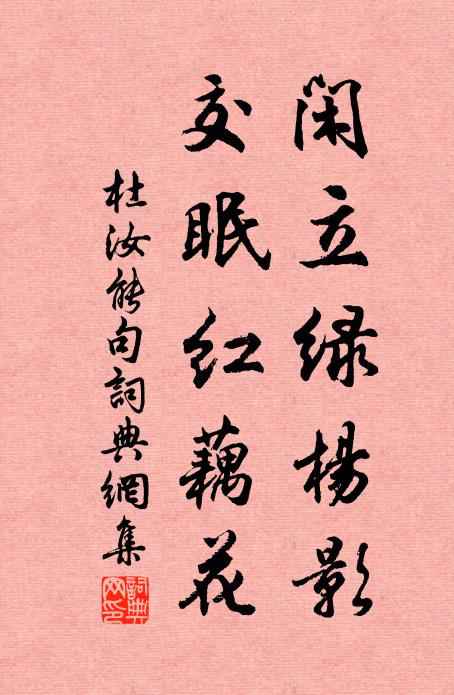 闲立绿楊影
交眠红藕花
杜汝能句詞典網集
詞典网印